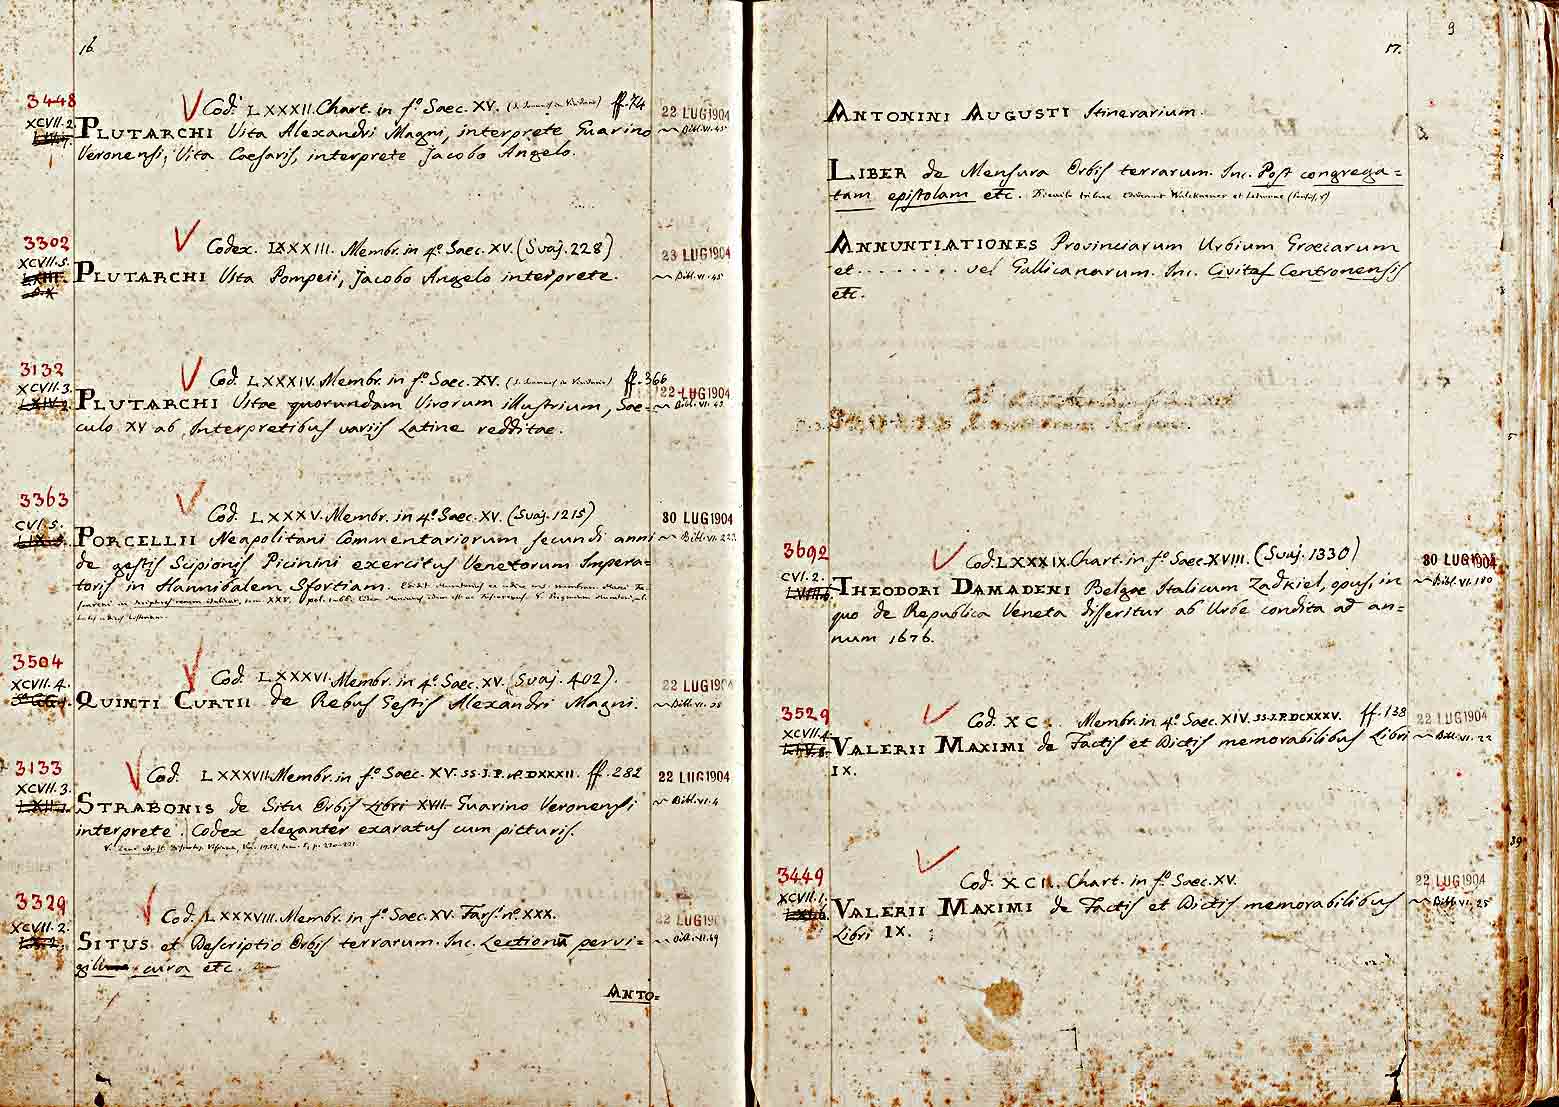 16.
3448
Cod. LXXXII. Chart. in f.º Saec. XV. ff. 74
22 LUG 1904
XCVII. 2
PLUTARCHI Vita Alexandri Magni, interprete Guarino
Bibl. VI. 45
Veronensi; Vita Caesaris, interprete Jacobo Angelo.
3302
Codex. LXXXIII. Membr. in 4.º Saec. XV. (Svaj. 228)
23 LUG 1904
XCVII. 5.
PLUTARCHI Vita Pompeii, Jacobo Angelo interprete.
Bibl. VI. 45
3132
Cod. LXXXIV. Membr. in f.º Saec. XV. ff. 366
22 LUG 1904
XCVII. 3.
PLUTARCHI Vitae quorundam Virorum illustrium, Sae=
Bibl. VI. 45
culo XV ab Interpretibus variis Latine redditae.
3363
Cod. LXXXV. Membr. in 4.º Saec. XV. (Svaj. 1215)
30 LUG 1904
CVI. 5.
PORCELLII Neapolitani Commentariorum secundi anni
Bibl. VI.
de gestis Scipionis Picinini exercitus Venetorum Impera=
toris in Hannibalem Sfortiam.
3504
Cod. LXXXVI. Membr. in 4.º Saec. XV. (Svaj. 402).
22 LUG 1904
XCVII. 4.
QUINTI CURTII de Rebus Gestis Alexandri Magni.
Bibl. VI. 38
3133
Cod. LXXXVII. Membr. in f.º Saec. XV. SS. J. P. nº. DXXXII. ff. 282
22 LUG 1904
XCVII. 3.
STRABONIS de Situ Orbis Libri XVII. Guarino Veronensi
Bibl. VI. 4
interprete. Codex eleganter exaratus cum picturis.
3329
Cod. LXXXVIII. Membr. in f.º Saec. XV. Fars. nº. XXX.
22 LUG
XCVII. 2.
SITUS et Descriptio Orbis terrarum. Inc. Lectionū pervi=
cura etc.
ANTO=
9
17.
ANTONINI AUGUSTI Itinerarium.
LIBER de Mensura Orbis terrarum. Inc. Post congrega=
tam epistolam etc.
ANNUNTIATIONES Provinciarum Urbium Graecarum
et . . . . . . . . vel Gallicanarum. Inc. Civitas Centronensis
etc.
3692
Cod. LXXXIX. Chart. in f.º Saec. XVIII. (Svaj. 1330)
30 LUG 1904
CVI. 2.
THEODORI DAMADENI Belgae Italicum Zadkiel, opus, in
Bibl. VI. 180
quo de Republica Veneta disseritur ab Urbe condita ad an=
num 1676.
3529
Cod. XC. Membr. in 4.º Saec. XIV. SS. J. P. DCXXXV. ff. 138
22 LUG 1904
XCVII. 4.
VALERII MAXIMI de Factis et Dictis memorabilibus Libri
Bibl. VI. 22
IX.
3449
Cod. XCI. Chart. in f.º Saec. XV.
22 LUG 1904
XCVII. 1.
VALERII MAXIMI de Factis et Dictis memorabilibus
Bibl. VI. 25
Libri IX.